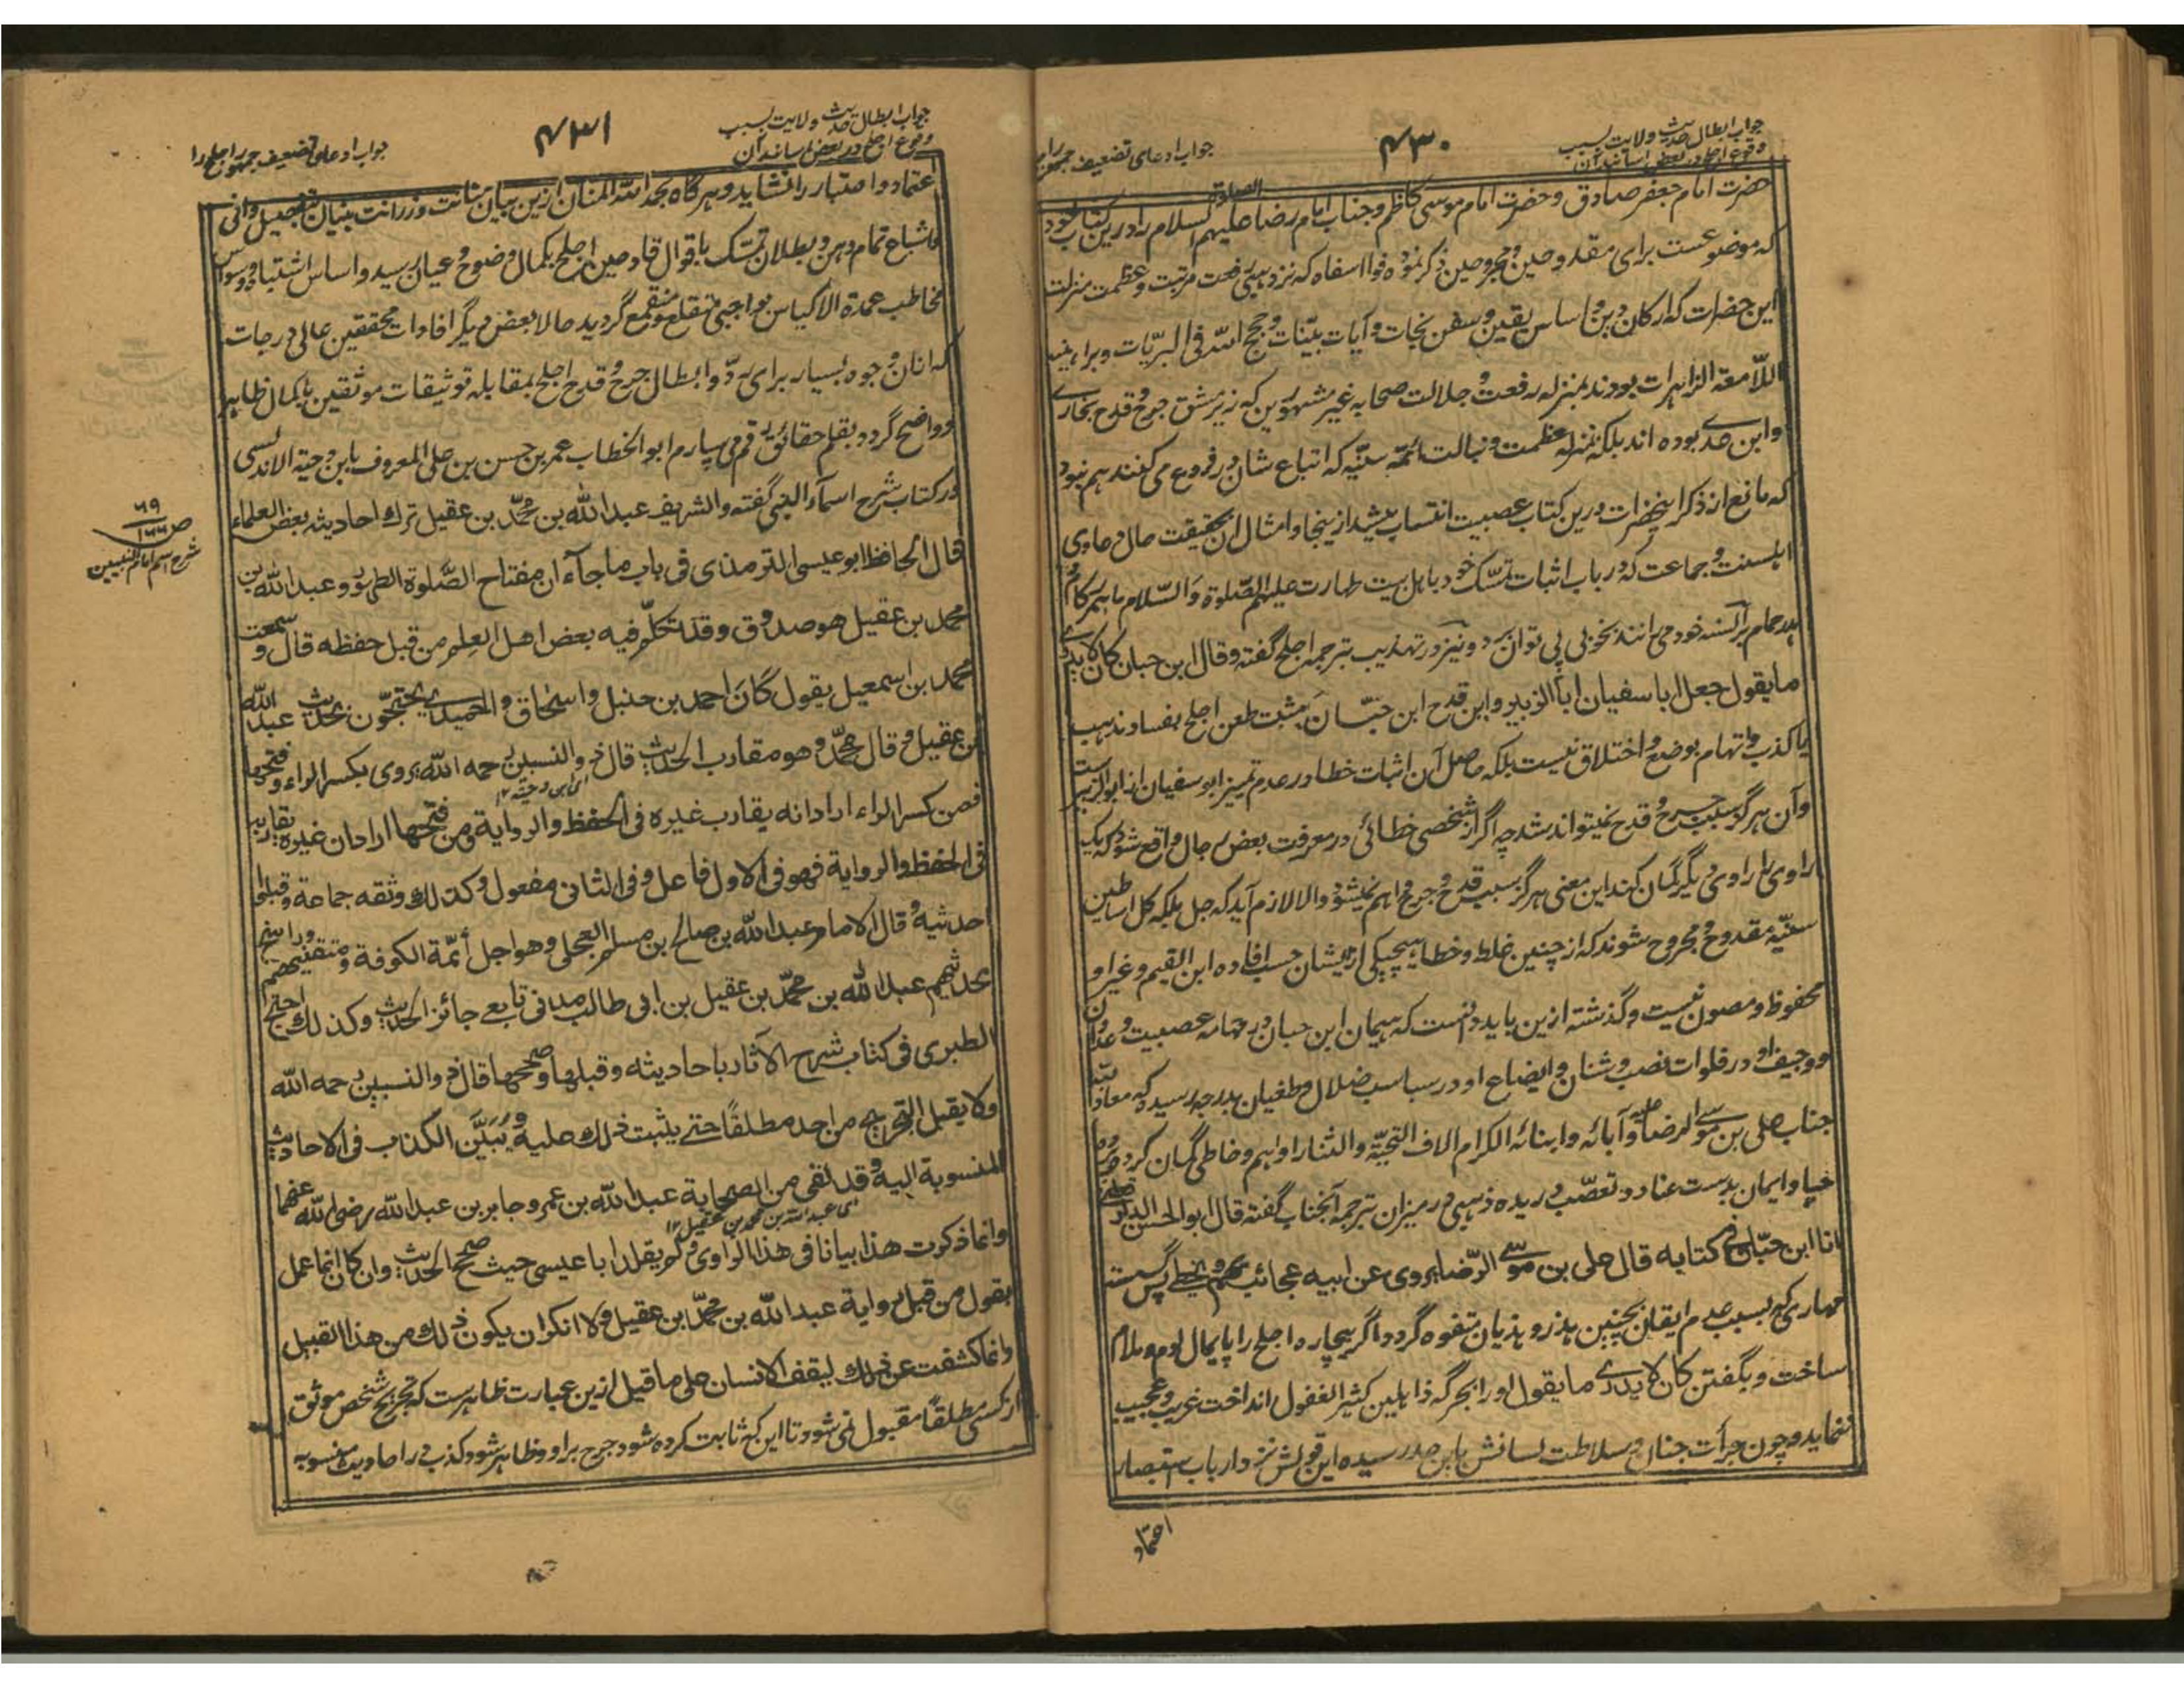 جواب ابطال حدیث ولایت بسبب
وقوع اجلح در بعض اسانید آن
۴۳۰
جواب ادعای تضعیف جمهور
حضرت امام جعفر صادق و حضرت امام موسی کاظم و جناب امام رضا علیهم الصلوة السلام را درین کتاب خود
که موضوعست برای مقدوحین و مجروحین ذکر نموده فوا اسفاه که نزد ذهبی رفعت مرتبت و عظمت منزلت
این حضرات که ارکان دین و اساس یقین و سفن نجات و آیات بینات و حجج الله فی البریّات و براهینه
اللّامعة الزاهرات بودند بمنزله رفعت و جلالت صحابه غیر مشهورین که زیر مشق جرح و قدح بخاری
و ابن عدی بوده اند بلکه بمنزله عظمت و نبالت ائمّه سنّیّه که اتباع شان در فروع می کنند هم نبود
که مانع از ذکر اینحضرات درین کتاب عصبیت انتساب میشد ازینجا و امثال آن حقیقت حال دعاوی
اهلسنت و جماعت که در باب اثبات تمسّک خود باهل بیت طهارت علیهم الصّلوة والسّلام ما
بر السنه خود می رانند بخوبی پی توان برد و نیز در تهذیب بترجمه اجلح گفته و قال ابن حبان کان لا یدری
ما یقول جعل ابا سفیان ابا الزبیر و این قدح ابن حبّان مثبت طعن اجلح بفساد مذهب
یا کذب و اتهام بوضع و اختلاق نیست بلکه حاصل آن اثبات خطا در عدم تمیز ابو سفیان از ابو الزبیر است
و آن هرگز سبب جرح و قدح نمیتواند شد چه اگر از شخصی خطائی در معرفت بعض رجال واقع شود که یک
راوی را راوی دیگر گمان کند این معنی هرگز سبب قدح و جرح او هم نمیشود و الا لازم آید که جل بلکه کل اساطین
سنّیّه مقدوح و مجروح شوند که از چنین غلط و خطا هیچیکی از ایشان حسب افاده ابن القیم و غیر او
محفوظ و مصون نیست و گذشته ازین باید دانست که همان ابن حبان در مهامه عصبیت و عدوان
و وجیف او در فلوات نصب و شنان و ایضاع او در سباسب ضلال و طغیان بدرجه رسیده که معاذ الله
جناب علی بن موسی الرضا علیه و آبائه و ابنائه الکرام الاف التحیّة والثنا را واهم و خاطی گمان کرده
حیا و ایمان بدست عناد و تعصّب دریده ذهبی در میزان بترجمه آنجناب گفته قال ابو الحسن الدارقطنی
انا ابن حبّان فی کتابه قال علی بن موسی الرّضا یروی عن ابیه عجائب یهم و یخطی پس گسسته
مهاری که بسبب عدم ایقان بچنین هذر و هذیان متفوه گردد اگر بیچاره اجلح را پایمال لوم و ملام
ساخت و بگفتن کان لا یدری ما یقول او را بجرگه ذاهلین کثیر الغفول انداخت غریب و عجیب
ننماید و چون جرأت جنان و سلاطت لسانش باین حد رسیده این قولش نزد ارباب استبصار
اعتماد
جواب ابطال حدیث ولایت بسبب
وقوع اجلح در بعض اسانید آن
۴۳۱
جواب ادعای تضعیف جمهور اجلح را
اعتماد و اعتبار را نشاید و هر گاه بحمد الله المنان ازین بیان متانت و رزانت بنیان بتفصیل وافی
و اشباع تمام وهن و بطلان تمسّک باقوال قادحین اجلح بکمال وضوح و عیان رسید و اساس اشتباه و وسواس
مخاطب عمدة الاکیاس بواجبی منقلع و منقمع گردید حالا بعض دیگر افادات محققین عالی درجات
که ازان وجوه بسیار برای ردّ و ابطال جرح و قدح اجلح بمقابله توثیقات موثقین بکمال ظاهر
و واضح گردد بقلم حقائق رقم می سپارم ابو الخطاب عمر بن حسن بن علی المعروف بابن دحیة الاندلسی
در کتاب شرح اسمآء النبی گفته و الشریف عبد الله بن محمّد بن عقیل ترک احادیثه بعض العلماء
قال الحافظ ابو عیسی الترمذی فی باب ما جآء ان مفتاح الصّلوة الطهور و عبد الله بن
محمد بن عقیل هو صدوق و قد تکلّم فیه بعض اهل العلم من قبل حفظه قال و سمعت
محمد بن اسمعیل یقول کان احمد بن حنبل و اسحاق و الحمیدی یحتجّون بحدیث عبد الله
بن عقیل و قال محمّد و هو مقارب الحدیث قال ذو النسبین رحمه الله یروی بکسر الراء و فتحها
ای ابن دحیة ۱۲
فمن کسر الراء اراد انه یقارب غیره فی الحفظ والروایة و من فتحها اراد ان غیره یقاربه
فی الحفظ والروایة فهو فی الاول فاعل و فی الثانی مفعول و کذلک وثقه جماعة و قبلوا
حدیثه و قال الامام عبد الله بن صالح بن مسلم العجلی و هو اجل أئمّة الکوفة و متقنیهم
بحدیثهم عبد الله بن محمّد بن عقیل بن ابی طالب مدنی تابعی جائز الحدیث و کذلک احتج
الطبری فی کتاب شرح الآثار باحادیثه و قبلها و صححها قال ذو النسبین رحمه الله
ولا یقبل التجریح من احد مطلقاً حتی یثبت ذلک علیه و یُبَیَّن الکذب فی الاحادیث
المنسوبة الیه و قد لقی من الصحابة عبد الله بن عمر و جابر بن عبد الله رضی الله عنهما
ای عبد الله بن محمد بن عقیل ۱۲
و انما ذکرت هذا بیانا فی هذا الراوی و لم یقلد ابا عیسی حیث صحح الحدیث و ان کان انما عمل
بقول من قبل روایة عبد الله بن محمّد بن عقیل و لا انکر ان یکون ذلک من هذا القبیل
و انما کشفت عن ذلک لیقف الانسان علی ما قیل ازین عبارت ظاهرست که تجریح شخص موثق
از کسی مطلقاً مقبول نمی شود تا این که ثابت کرده شود جرح بر او و ظاهر شود کذب در احادیث منسوبه
۶۹
ص ۱۶۶
شرح اسم امام النبیین